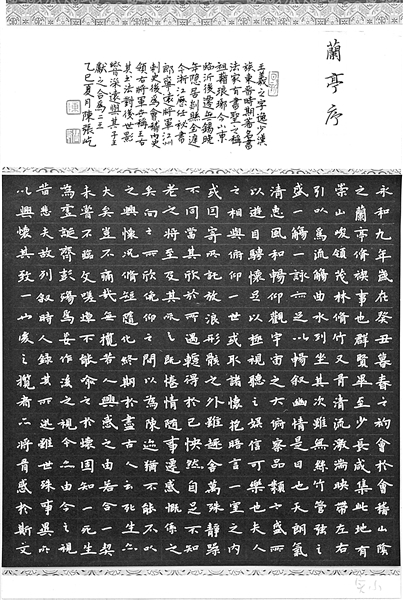 蘭亭序
王羲之字逸少漢
族東晉時期著名書
法家有書聖之稱
祖籍琅琊今山東
臨沂後遷無錫晚
年隱居剡縣金庭
今浙江歷任秘書
郎寧遠將軍江州
刺史後為會稽內史
領右將軍人稱王右
軍其書法對後世影
響深遠與其子王
獻之合為二王
乙巳夏月陳張屹
永和九年歲在癸丑暮春之初會於會稽山陰
之蘭亭脩禊事也群賢畢至少長咸集此地有
崇山峻領茂林脩竹又有清流激湍映帶左右
引以為流觴曲水列坐其次雖無絲竹管弦之
盛一觴一詠亦足以暢敘幽情是日也天朗氣
清惠風和暢仰觀宇宙之大俯察品類之盛所
以遊目騁懷足以極視聽之娛信可樂也夫人
之相與俯仰一世或取諸懷抱晤言一室之內
或因寄所託放浪形骸之外雖趣舍萬殊靜躁
不同當其欣於所遇暫得於己快然自足不知
老之將至及其所之既惓情隨事遷感慨係之
矣向之所欣俛仰之間以為陳迹猶不能不以
之興懷況脩短隨化終期於盡古人云死生亦
大矣豈不痛哉每攬昔人興感之由若合一契
未嘗不臨文嗟悼不能喻之於懷固知一死生
為虛誕齊彭殤為妄作後之視今亦由今之視
昔悲夫故列敘時人錄其所述雖世殊事異所
以興懷其致一也後之攬者亦將有感於斯文